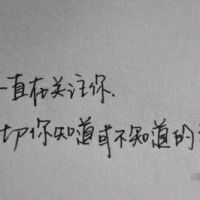 一直在关注你.
切你知道或不知道的